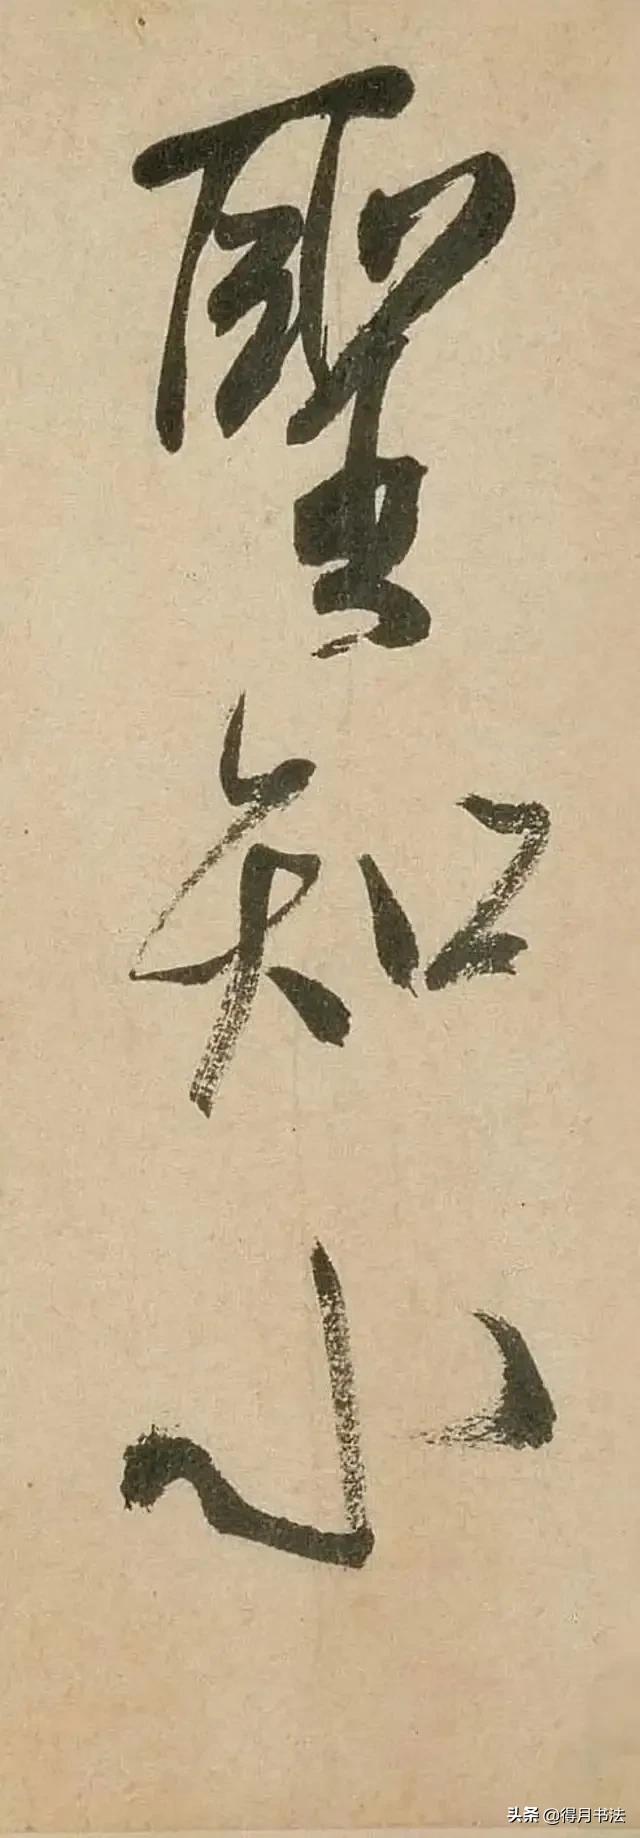 聖知小
头条 @得月书法